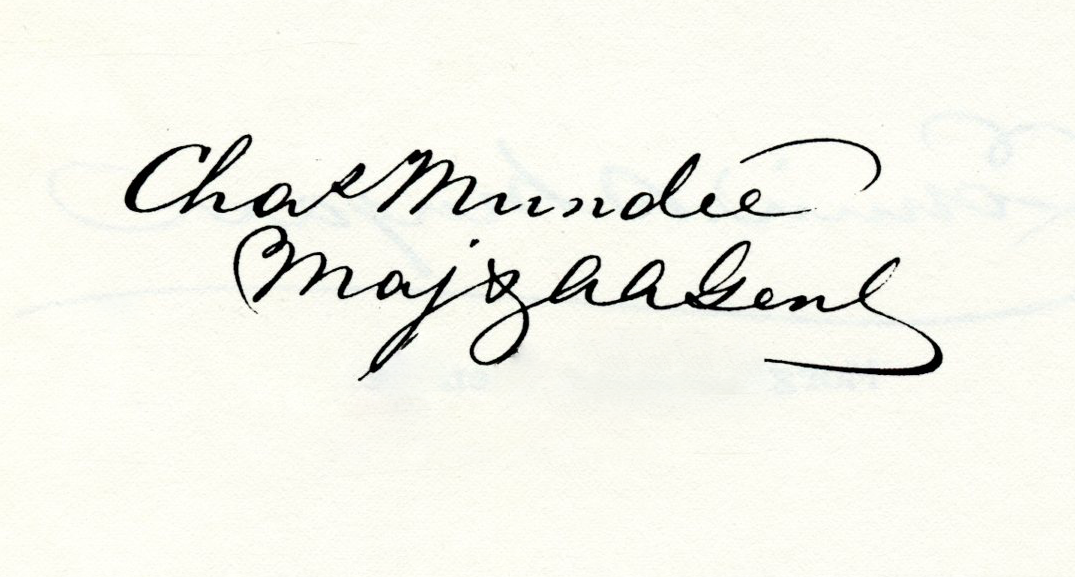 Chas Mundee
Maj & A A Genl